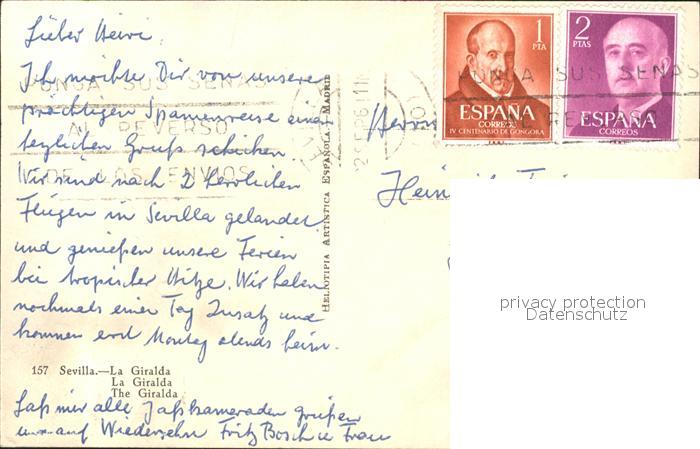 Lieber Heiri.
Ich möchte Dir von unserer
prächtigen Spanienreise einen
herzlichen Gruß schicken.
Wir sind nach 2 herrlichen
Flügen in Sevilla gelandet
und genießen unsere Ferien
bei tropischer Hitze. Wir haben
nochmals einen Tag Zusatz und
kommen erst Montag abends heim.
157 Sevilla.—La Giralda
La Giralda
The Giralda
Laß mir alle Jaßkameraden grüßen
und auf Wiedersehn Fritz Bosch u Frau
HELIOTIPIA ARTISTICA ESPAÑOLA - MADRID
PONGA SUS SEÑAS
AL REVERSO
DE LOS ENVIOS
1
PTA
ESPAÑA
CORREO
IV CENTENARIO DE GONGORA
2
PTAS
ESPAÑA
CORREOS
PONGA SUS SEÑAS
Herrn
privacy protection
Datenschutz